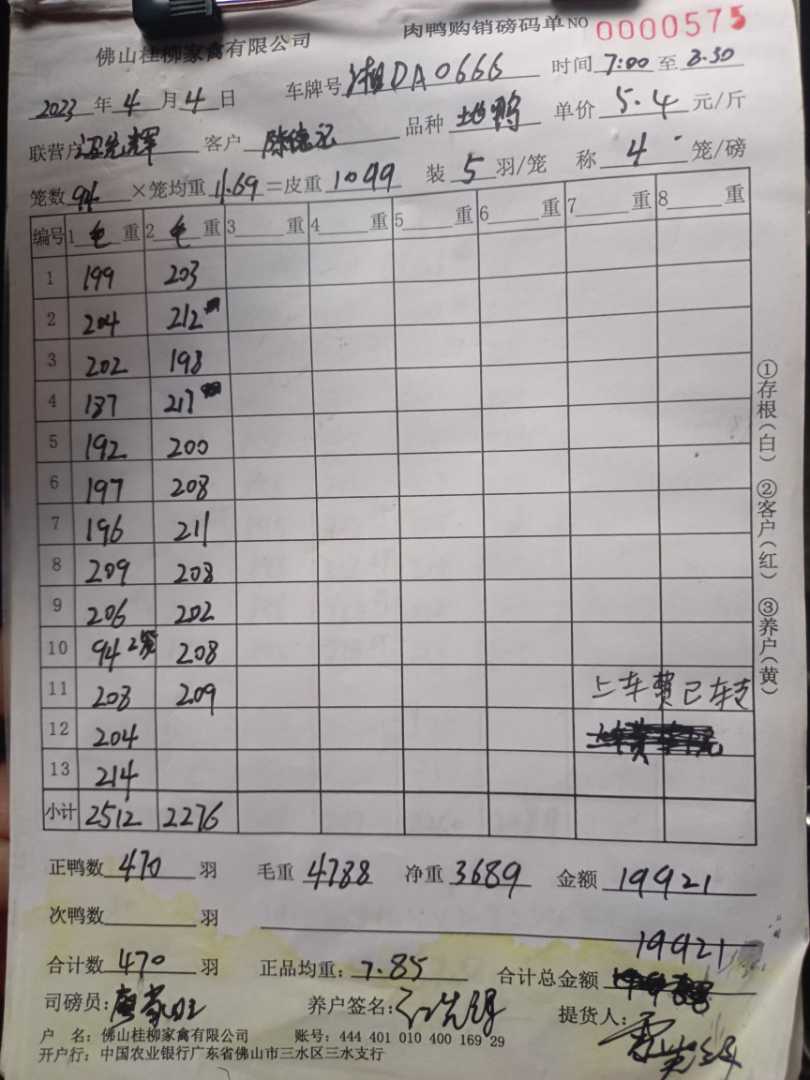 肉鸭购销磅码单 NO 0000575
佛山桂柳家禽有限公司
2023年4月4日 车牌号湘DA0666 时间7:00至8.30
联营户 客户 品种 地鸭 单价5.4元/斤
笼数94×笼均重11.69=皮重1099 装5羽/笼 称4笼/磅
编号 1毛重 2毛重 3重 4重 5重 6重 7重 8重
1 199 203
2 204 212
3 202 198
4 187 217
5 192 200
6 197 208
7 196 211
8 209 208
9 206 202
10 94 2笼 208
11 208 209 上车费已转支
12 204
13 214
小计 2512 2276
①存根(白) ②客户(红) ③养户(黄)
正鸭数470羽 毛重4788 净重3689 金额19921
次鸭数羽
19921
合计数470羽 正品均重:7.85 合计总金额
司磅员: 养户签名: 提货人:
户 名:佛山桂柳家禽有限公司 账号:444 401 010 400 169 29
开户行:中国农业银行广东省佛山市三水区三水支行